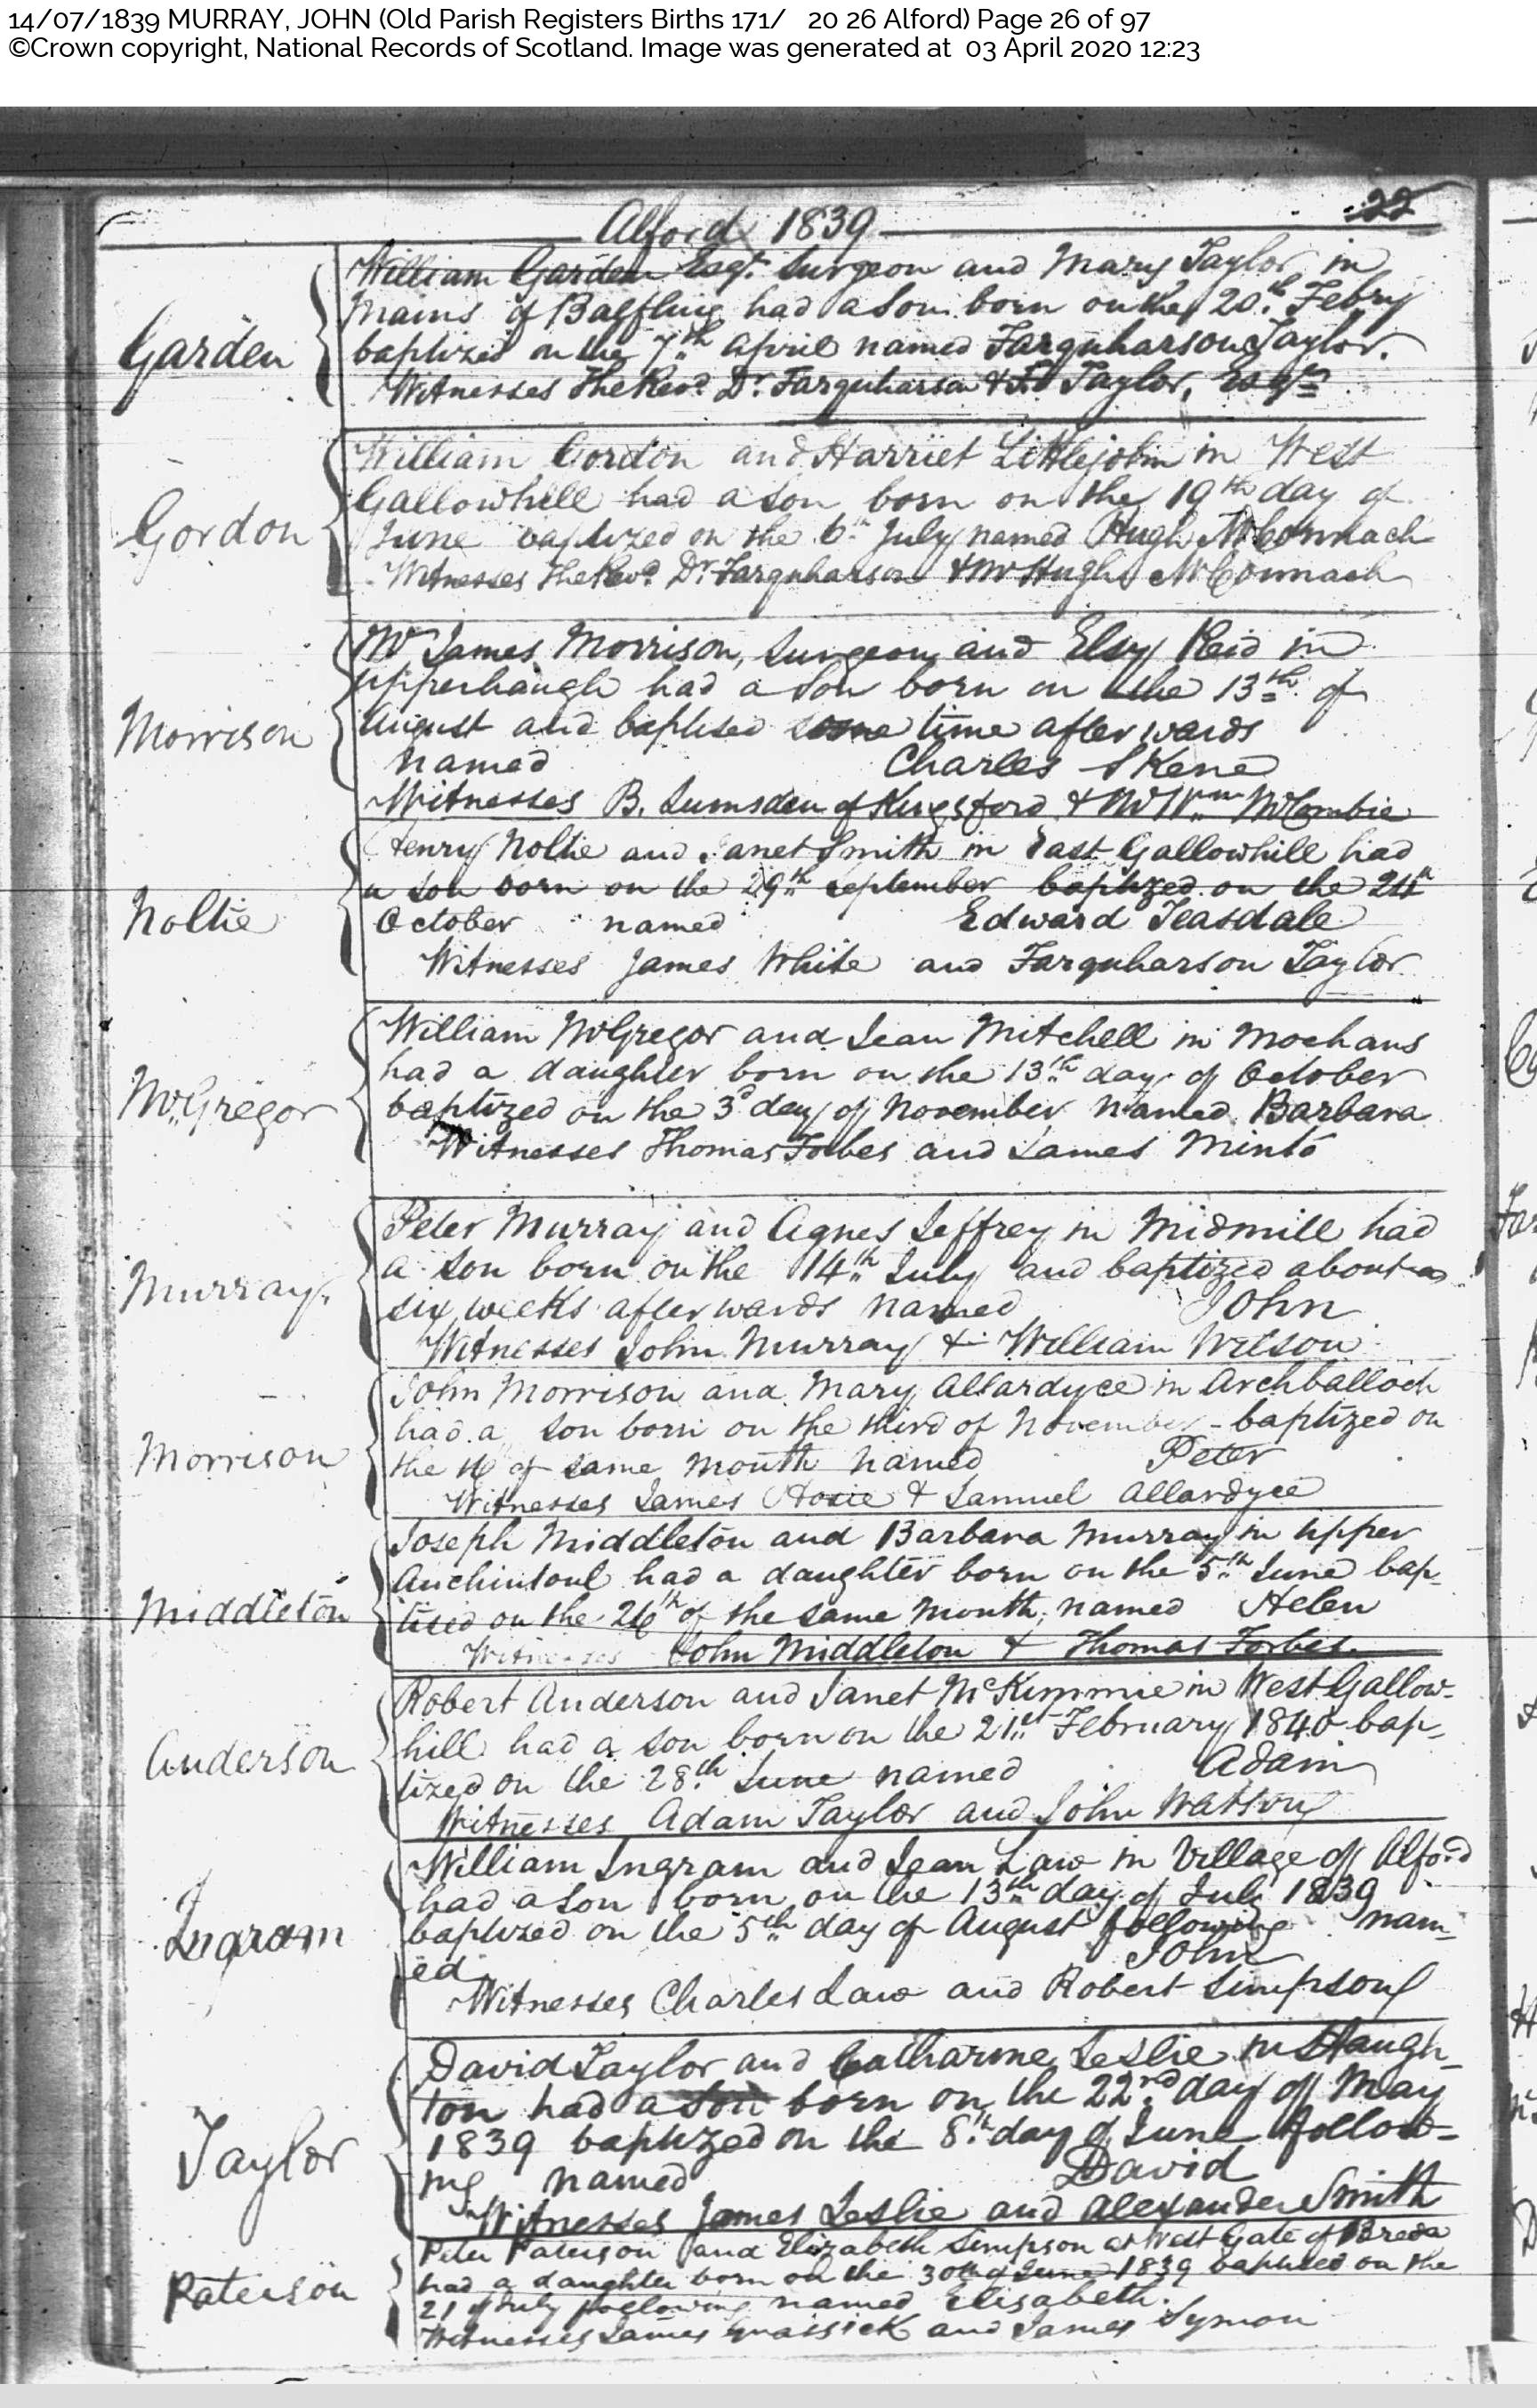 14/07/1839 MURRAY, JOHN (Old Parish Registers Births 171/ 20 26 Alford) Page 26 of 97
©Crown copyright, National Records of Scotland. Image was generated at 03 April 2020 12:23
Alford 1839
22
Garden
William Garden Esqr. Surgeon and Mary Taylor in
Mains of Balfluig had a Son born on the 20th Febry
baptized on the 7th April named Farquharson Taylor.
Witnesses The Revd. Dr. Farquharson & Taylor, Esqrs
Gordon
William Gordon and Harriet Littlejohn in West
Gallowhill had a son born on the 19th day of
June baptized on the 6th July named Hugh McConnach
Witnesses The Revd. Dr. Farquharson & Mr Hugh McConnach
Morrison
Mr James Morrison, Surgeon and Elsy Reid in
upperhaugh had a Son born on the 13th of
August and baptised some time afterwards
named Charles Skene
Witnesses B. Lumsden of Kingsford & Mr Wm McCombie
Noltie
Henry Noltie and Janet Smith in East Gallowhill had
a son born on the 29th September baptized on the 24th
October named Edward Teasdale
Witnesses James White and Farquharson Taylor
McGregor
William McGregor and Jean Mitchell in Mochans
had a daughter born on the 13th day of October
baptized on the 3d day of November named Barbara
Witnesses Thomas Forbes and James Minto
Murray
Peter Murray and Agnes Jeffrey in Midmill had
a son born on the 14th July and baptized about
six weeks afterwards named John
Witnesses John Murray & William Wilson
Morrison
John Morrison and Mary Allardyce in Archballoch
had a son born on the third of November - baptized on
the 16 of same month named Peter
Witnesses James Hosie & Samuel Allardyce
Middleton
Joseph Middleton and Barbara Murray in upper
Auchintoul had a daughter born on the 5th June bap-
tized on the 26th of the same month, named Helen
Witnesses John Middleton & Thomas Forbes.
Anderson
Robert Anderson and Janet McKimmie in West Gallow-
hill had a son born on the 21st February 1840 bap-
tized on the 28th June named Adam
Witnesses Adam Taylor and John Watson
Ingram
William Ingram and Jean Law in Village of Alford
had a son born on the 13th day of July 1839
baptized on the 5th day of August following nam-
ed John
Witnesses Charles Law and Robert Simpson
Taylor
David Taylor and Catharine Leslie in Haugh-
ton had a son born on the 22nd day of May
1839 baptized on the 8th day of June follow-
ing named David
Witnesses James Leslie and Alexander Smith
Paterson
Peter Paterson and Elizabeth Simpson at West Gate of Breda
had a daughter born on the 30th of June 1839 baptized on the
21 of July following named Elisabeth.
Witnesses James and James Symon